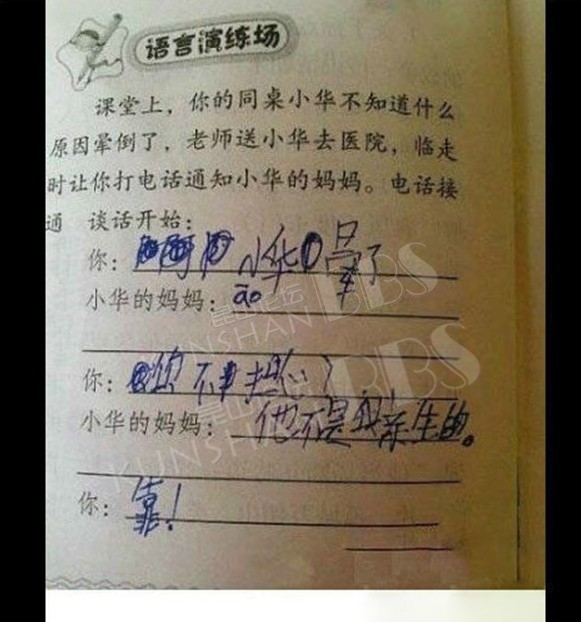 语言演练场
课堂上，你的同桌小华不知道什么
原因晕倒了，老师送小华去医院，临走
时让你打电话通知小华的妈妈。电话接
通　谈话开始：
你：小华晕了
小华的妈妈：āo
你：你不担心？
小华的妈妈：他不是我亲生的。
你：靠！
昆山论坛
KUNSHAN BBS
昆山论坛
KUNSHAN BBS